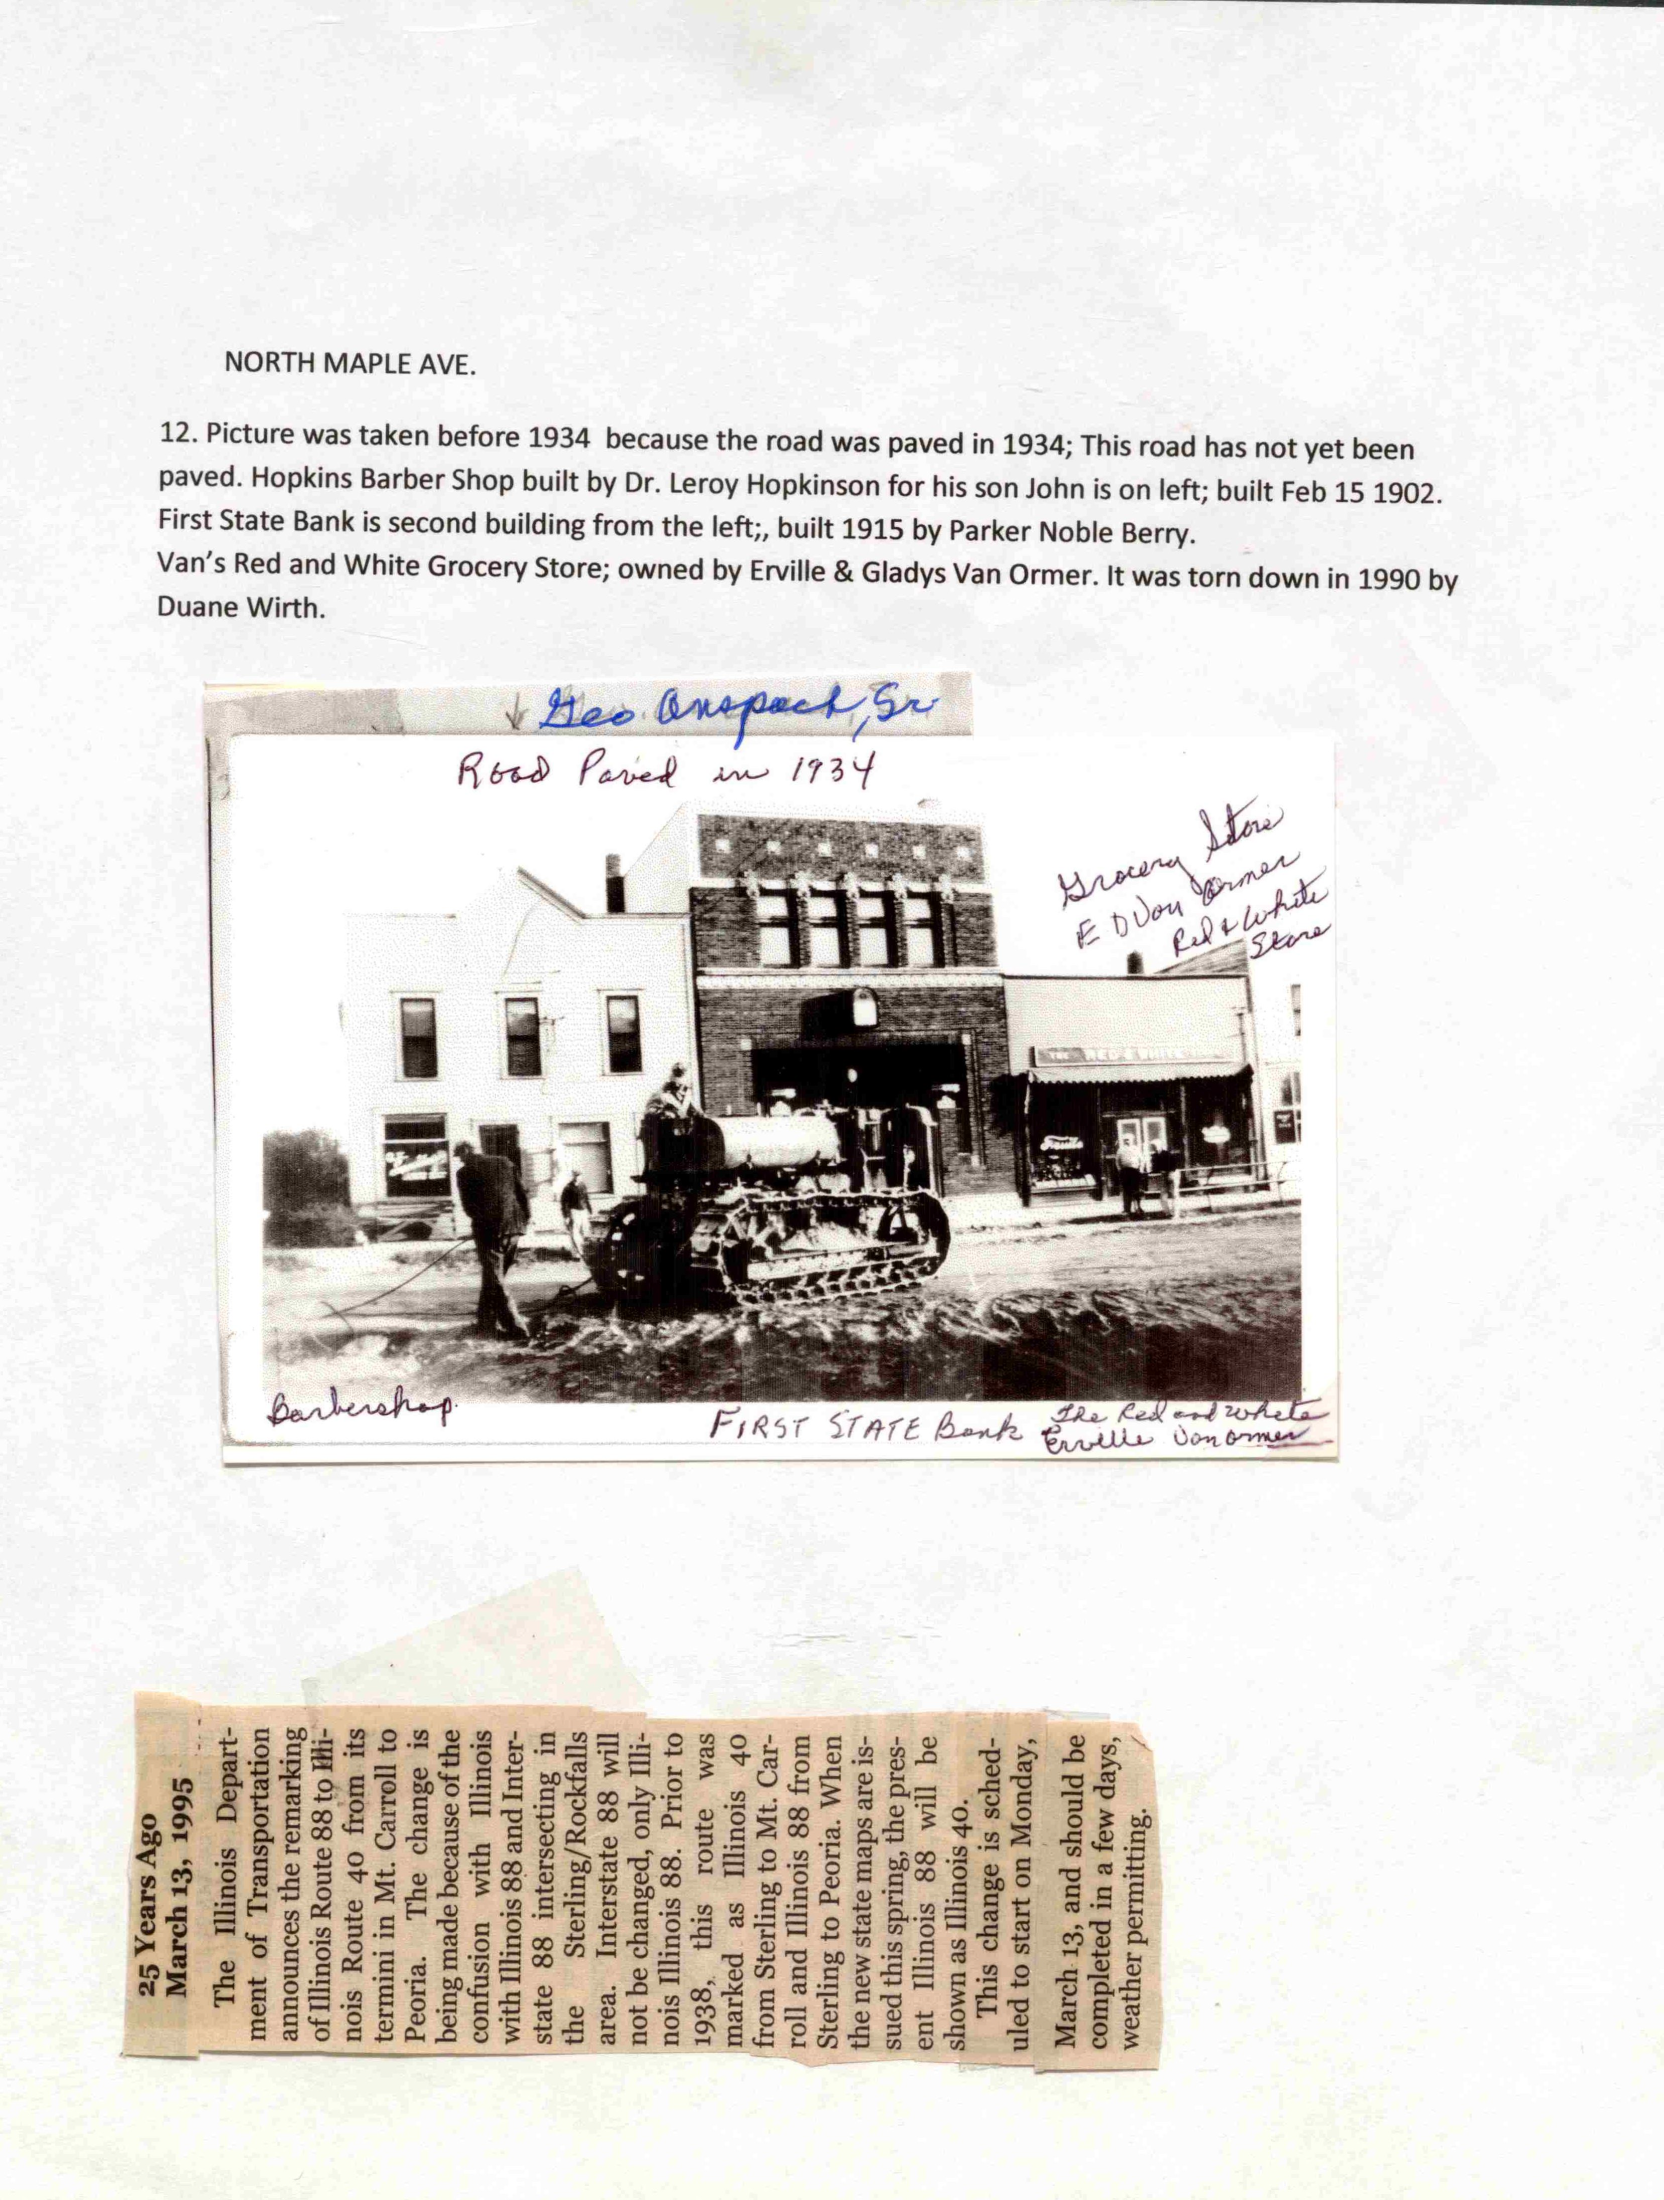 NORTH MAPLE AVE.
12. Picture was taken before 1934 because the road was paved in 1934; This road has not yet been
paved. Hopkins Barber Shop built by Dr. Leroy Hopkinson for his son John is on left; built Feb 15 1902.
First State Bank is second building from the left;, built 1915 by Parker Noble Berry.
Van's Red and White Grocery Store; owned by Erville & Gladys Van Ormer. It was torn down in 1990 by
Duane Wirth.
Geo. Anspach, Sr.
Road Paved in 1934
Grocery Store
E D Van Ormer
Red & White
Store
THE RED & WHITE
Barbershop.
FIRST STATE Bank
The Red and White
Erville Van ormer
25 Years Ago
March 13, 1995
The Illinois Depart-
ment of Transportation
announces the remarking
of Illinois Route 88 to Illi-
nois Route 40 from its
termini in Mt. Carroll to
Peoria. The change is
being made because of the
confusion with Illinois
with Illinois 88 and Inter-
state 88 intersecting in
the Sterling/Rockfalls
area. Interstate 88 will
not be changed, only Illi-
nois Illinois 88. Prior to
1938, this route was
marked as Illinois 40
from Sterling to Mt. Car-
roll and Illinois 88 from
Sterling to Peoria. When
the new state maps are is-
sued this spring, the pres-
ent Illinois 88 will be
shown as Illinois 40.
This change is sched-
uled to start on Monday,
March 13, and should be
completed in a few days,
weather permitting.